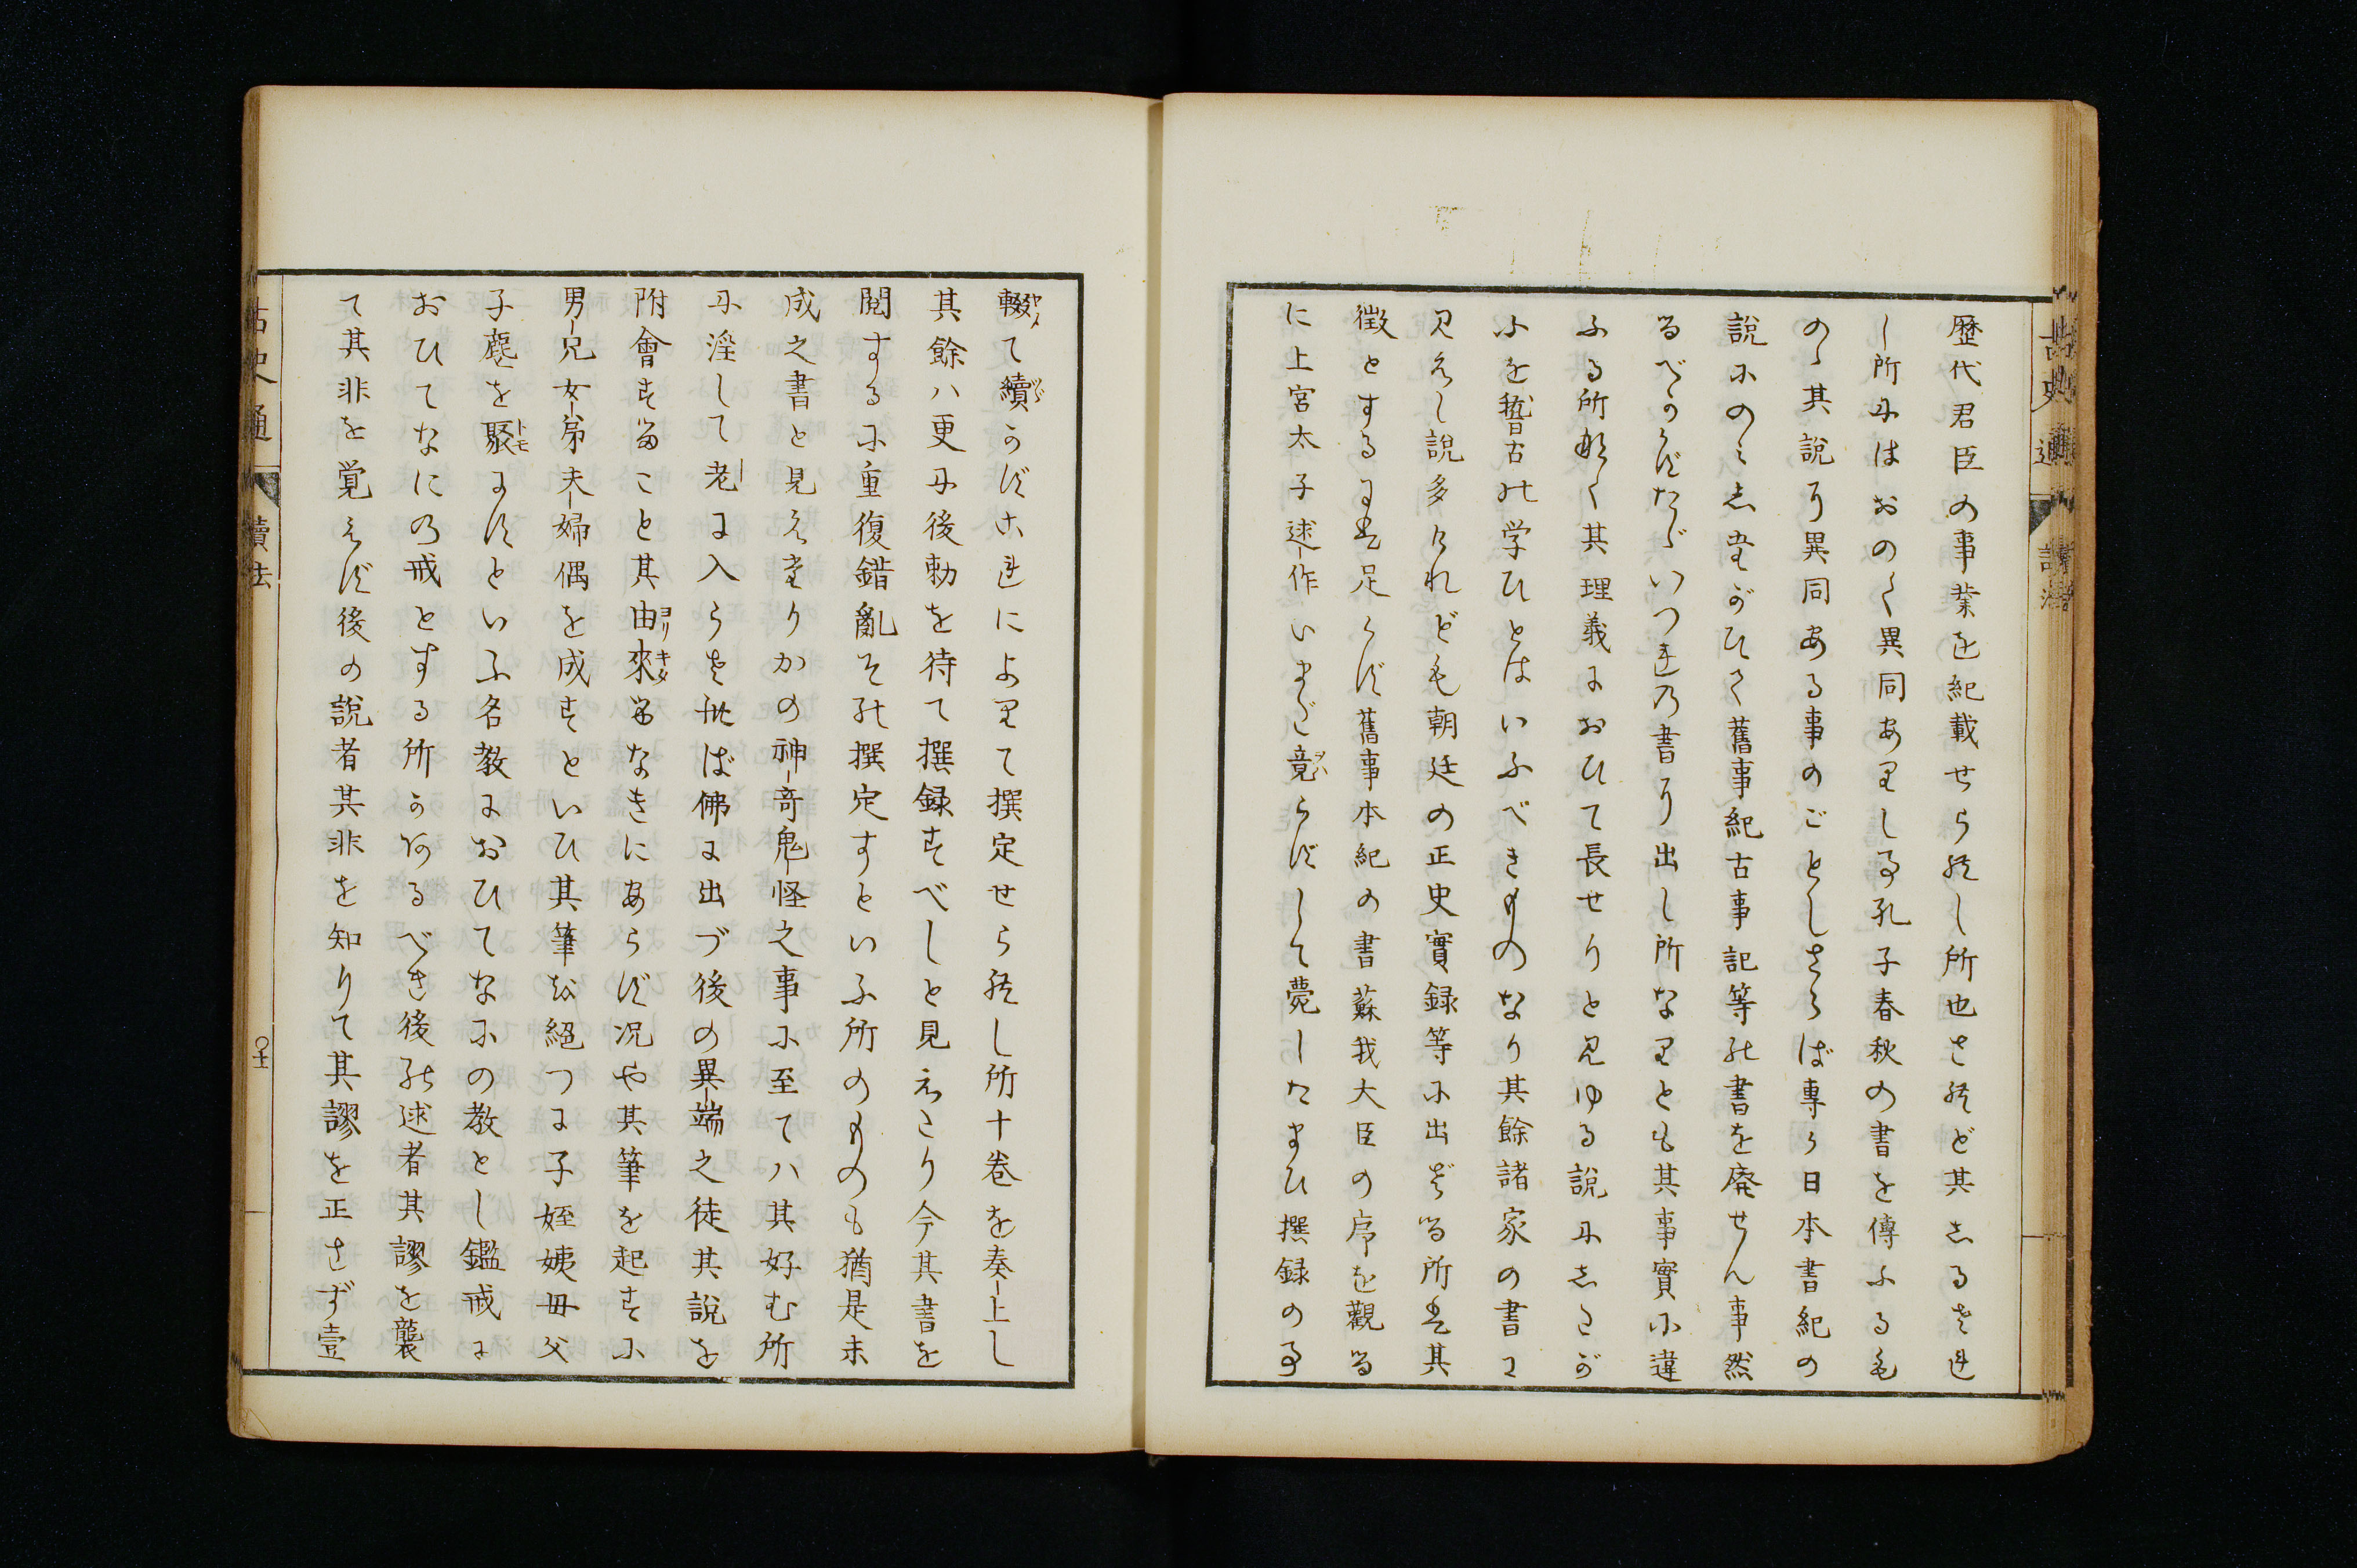 古史通
讀法
歴代君臣の事業を紀載せられし所也されど其しるされ
し所にはおのく異同ありし事孔子春秋の書を傳ふるも
のゝ其説に異同ある事のごとしさらば専ら日本書紀の
説にのみしたがひて舊事紀古事記等の書を廃せん事然
るべからずたゞいつれの書に出し所なりとも其事實に違
ふ所なく其理義におひて長せりと見ゆる説にしたが
ふを稽古の学ひとはいふべきものなり其餘諸家の書に
見えし説多けれども朝廷の正史實録等に出ざる所は其
徴とするには足らず舊事本紀の書蘇我大臣の序を觀る
に上宮太子述作いまだ竟らずして薨したまひ撰録の事
輟て續かずこれによりて撰定せられし所十巻を奏上し
其餘ハ更に後勅を待て撰録すべしと見えたり今其書を
閲するに重復錯亂その撰定すといふ所のものも猶是未
成之書と見えたりかの神奇鬼怪之事に至てハ其好む所
に淫して老に入らされば佛に出づ後の異端之徒其説を
附會する こと其由來るなきにあらず况や其筆を起すに
男兄女弟夫婦偶を成すといひ其筆を絕つに子姪姨母父
子麀を聚にすといふ名教におひてなにの教とし鑑戒に
おひてなにの戒とする所かあるべき後の述者其謬を襲
て其非を覚えず後の説者其非を知りて其謬を正さず壹
古史通
讀法